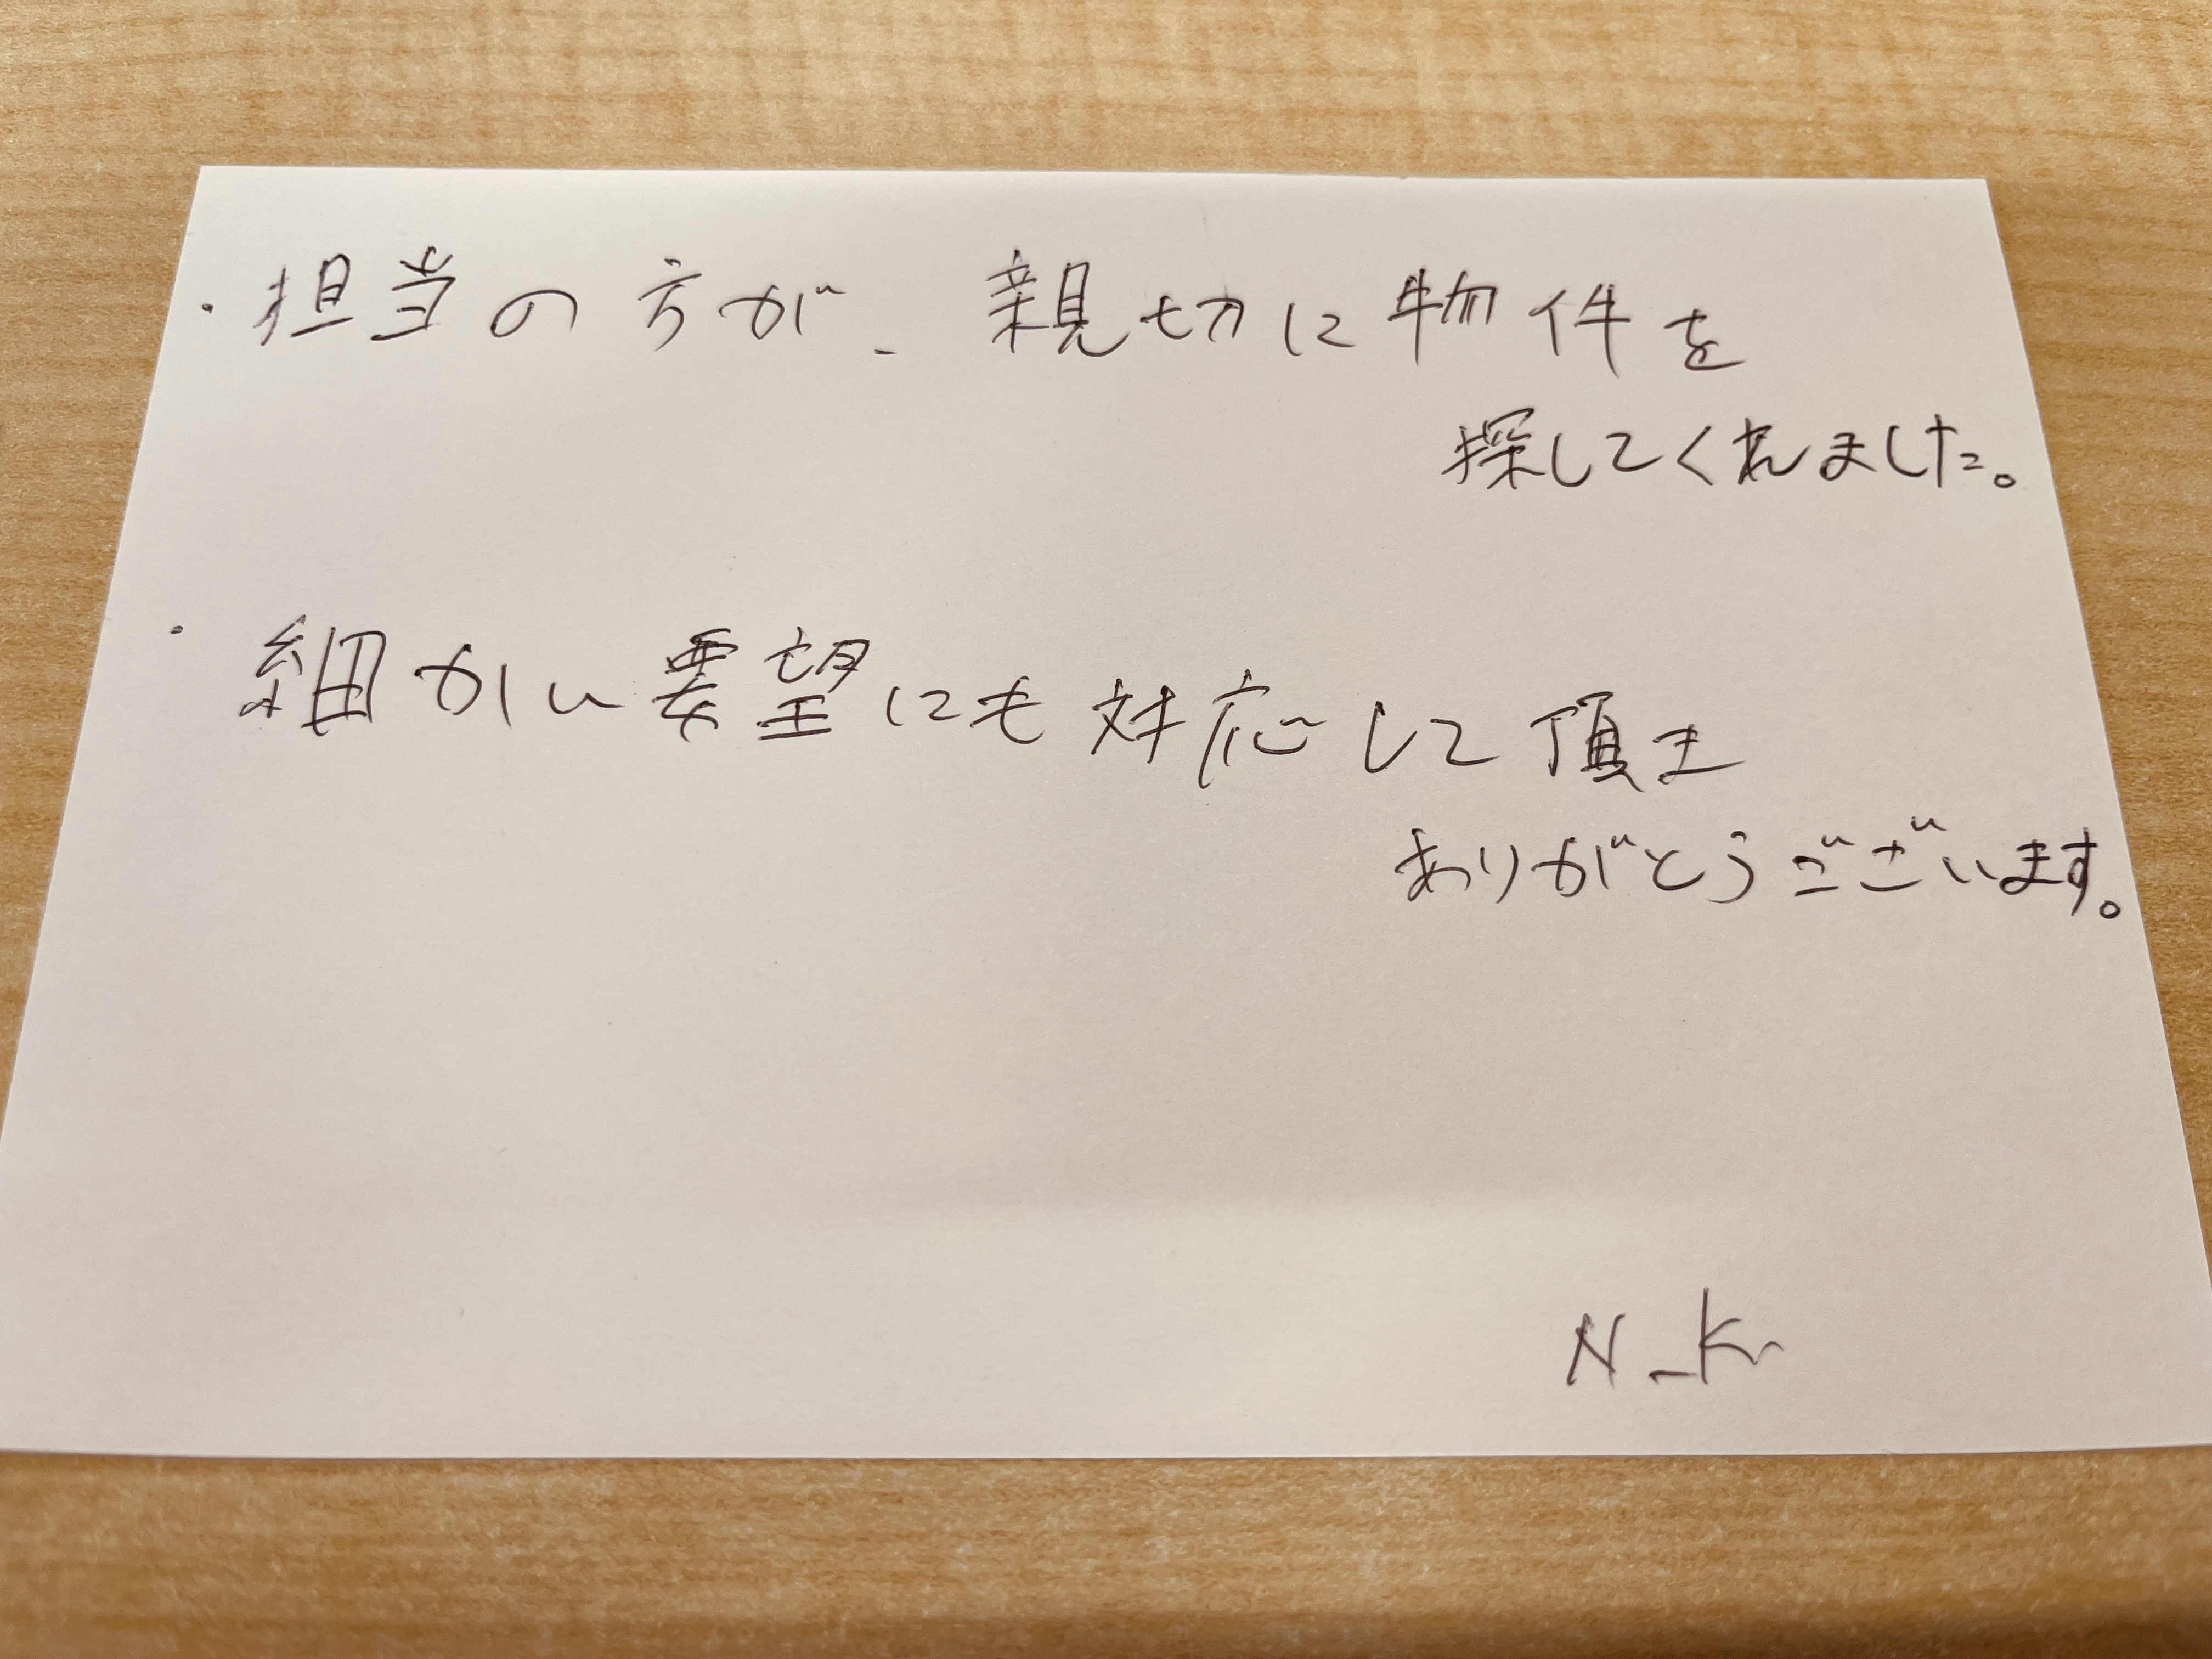 ・担当の方が、親切に物件を
探してくれました。
・細かい要望にも対応して頂き
ありがとうございます。
N_K